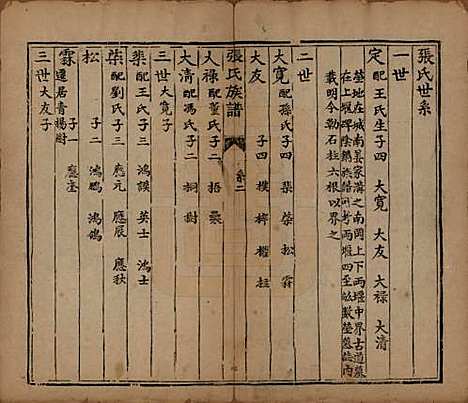 張氏世系
一世
定 配王氏生子四 大寬 大友 大祿 大清
塋地在城南晁家溝之南岡上下兩堰中界古道墓
在上堰碑陰鵝族譜可考兩堰四至畝數塋墓誌內
載明今勒石柱六根以界之
二世
大寬 配孫氏子四 榘 榮 松 霖
大友 子四 樸 梓 櫂 桂
張氏族譜 系二
大祿 配董氏子二 梧 槑
大清 配馮氏子二 桐 樹
三世大寬子
榘 配王氏子三 鴻謨 英士 鴻士
榮 配劉氏子三 應元 應辰 應狄
松 子二 鴻鵬 鴻鵠
霖 遷居青楊尉 子一 應奎
三世大友子